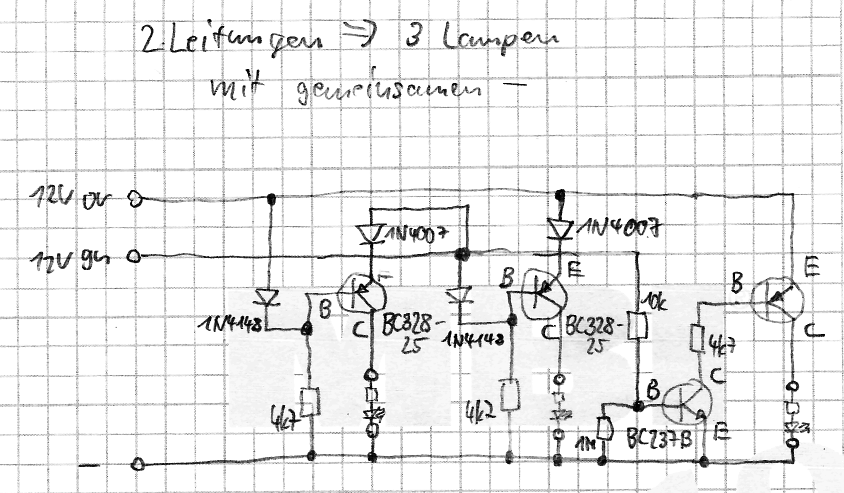 2 Leitungen ⇒ 3 Lampen
mit gemeinsamen –
12V or
12V gn
1N4007
1N4007
1N4148
B
C
BC328-25
4k7
1N4148
B
E
C
BC328-25
4k2
10k
1M
B
C
E
BC237B
4k7
B
E
C
–